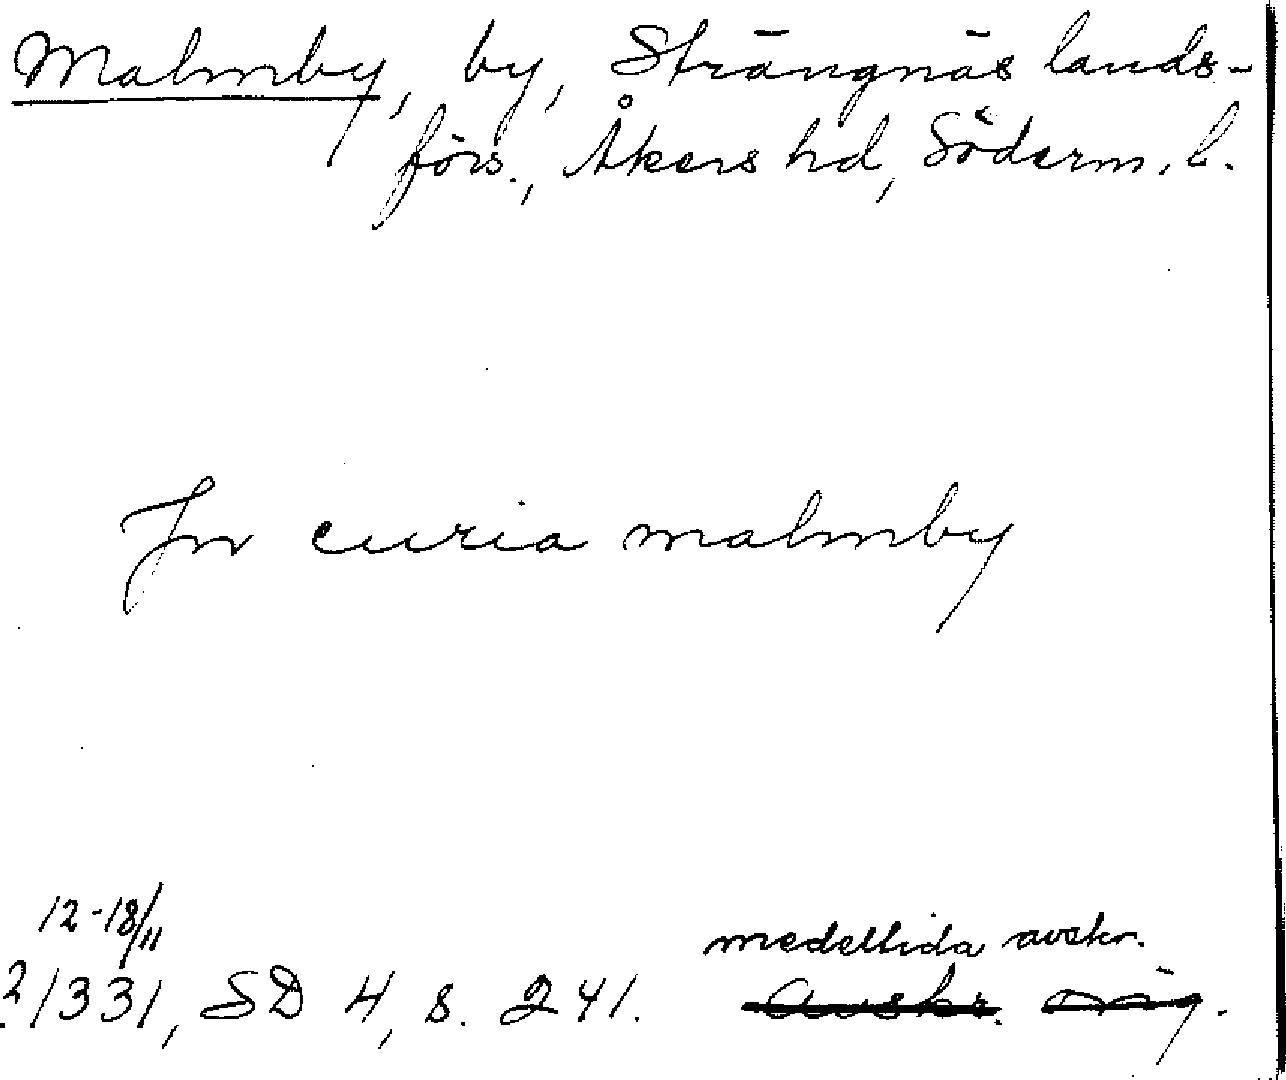 Malmby, by, Strängnäs lands-
förs., Åkers hd, Söderm. l.
In curia malmby
12-18/11
?1331, SD 4, s. 241.
medeltida avskr.
Avskr.